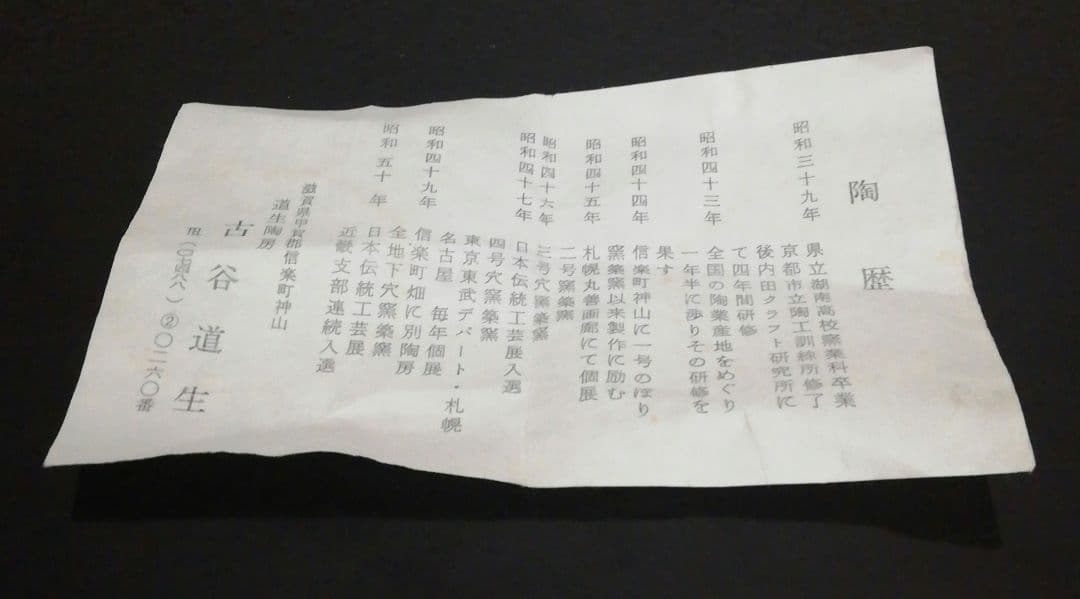 陶歴
昭和三十九年
県立湖南高校窯業科卒業
京都市立陶工訓練所修了
後内田クラフト研究所に
て四年間研修
昭和四十三年
全国の陶業産地をめぐり
一年半に渉りその研修を
果す
昭和四十四年
信楽町神山に一号のぼり
窯築窯以来製作に励む
昭和四十五年
札幌丸善画廊にて個展
二号窯築窯
昭和四十六年
三号穴窯築窯
昭和四十七年
日本伝統工芸展入選
四号穴窯築窯
東京東武デパート・札幌
名古屋 毎年個展
昭和四十九年
信楽町畑に別陶房
全地下穴窯築窯
昭和五十年
日本伝統工芸展
近畿支部連続入選
滋賀県甲賀郡信楽町神山
道生陶房
古谷道生
TEL(〇七四八八)②〇二六〇番